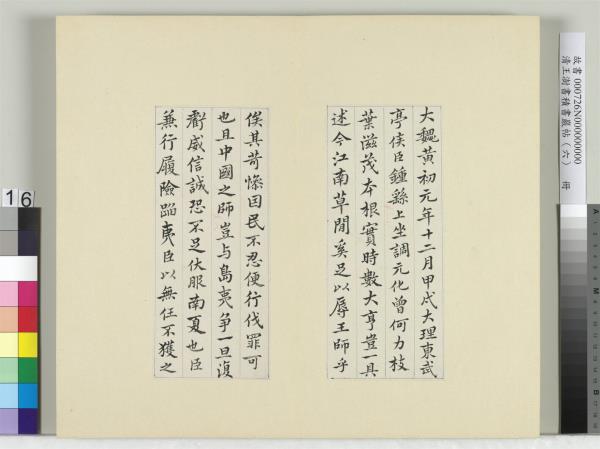 故書 000726N000000000
清王澍書積書巖帖（六） 冊
大魏黃初元年十二月甲戌大理東武
亭侯臣鍾繇上坐調元化曾何力枝
葉滋茂本根實時數大亨豈一具
述今江南草閒奚足以辱王師乎
俟其苛慘因民不忍便行伐罪可
也且中國之師豈与島夷爭一旦復
虧威信誠恐不足伏服南夏也臣
蒹行履險蹈夷臣以無任不獲之
16
A
M
B